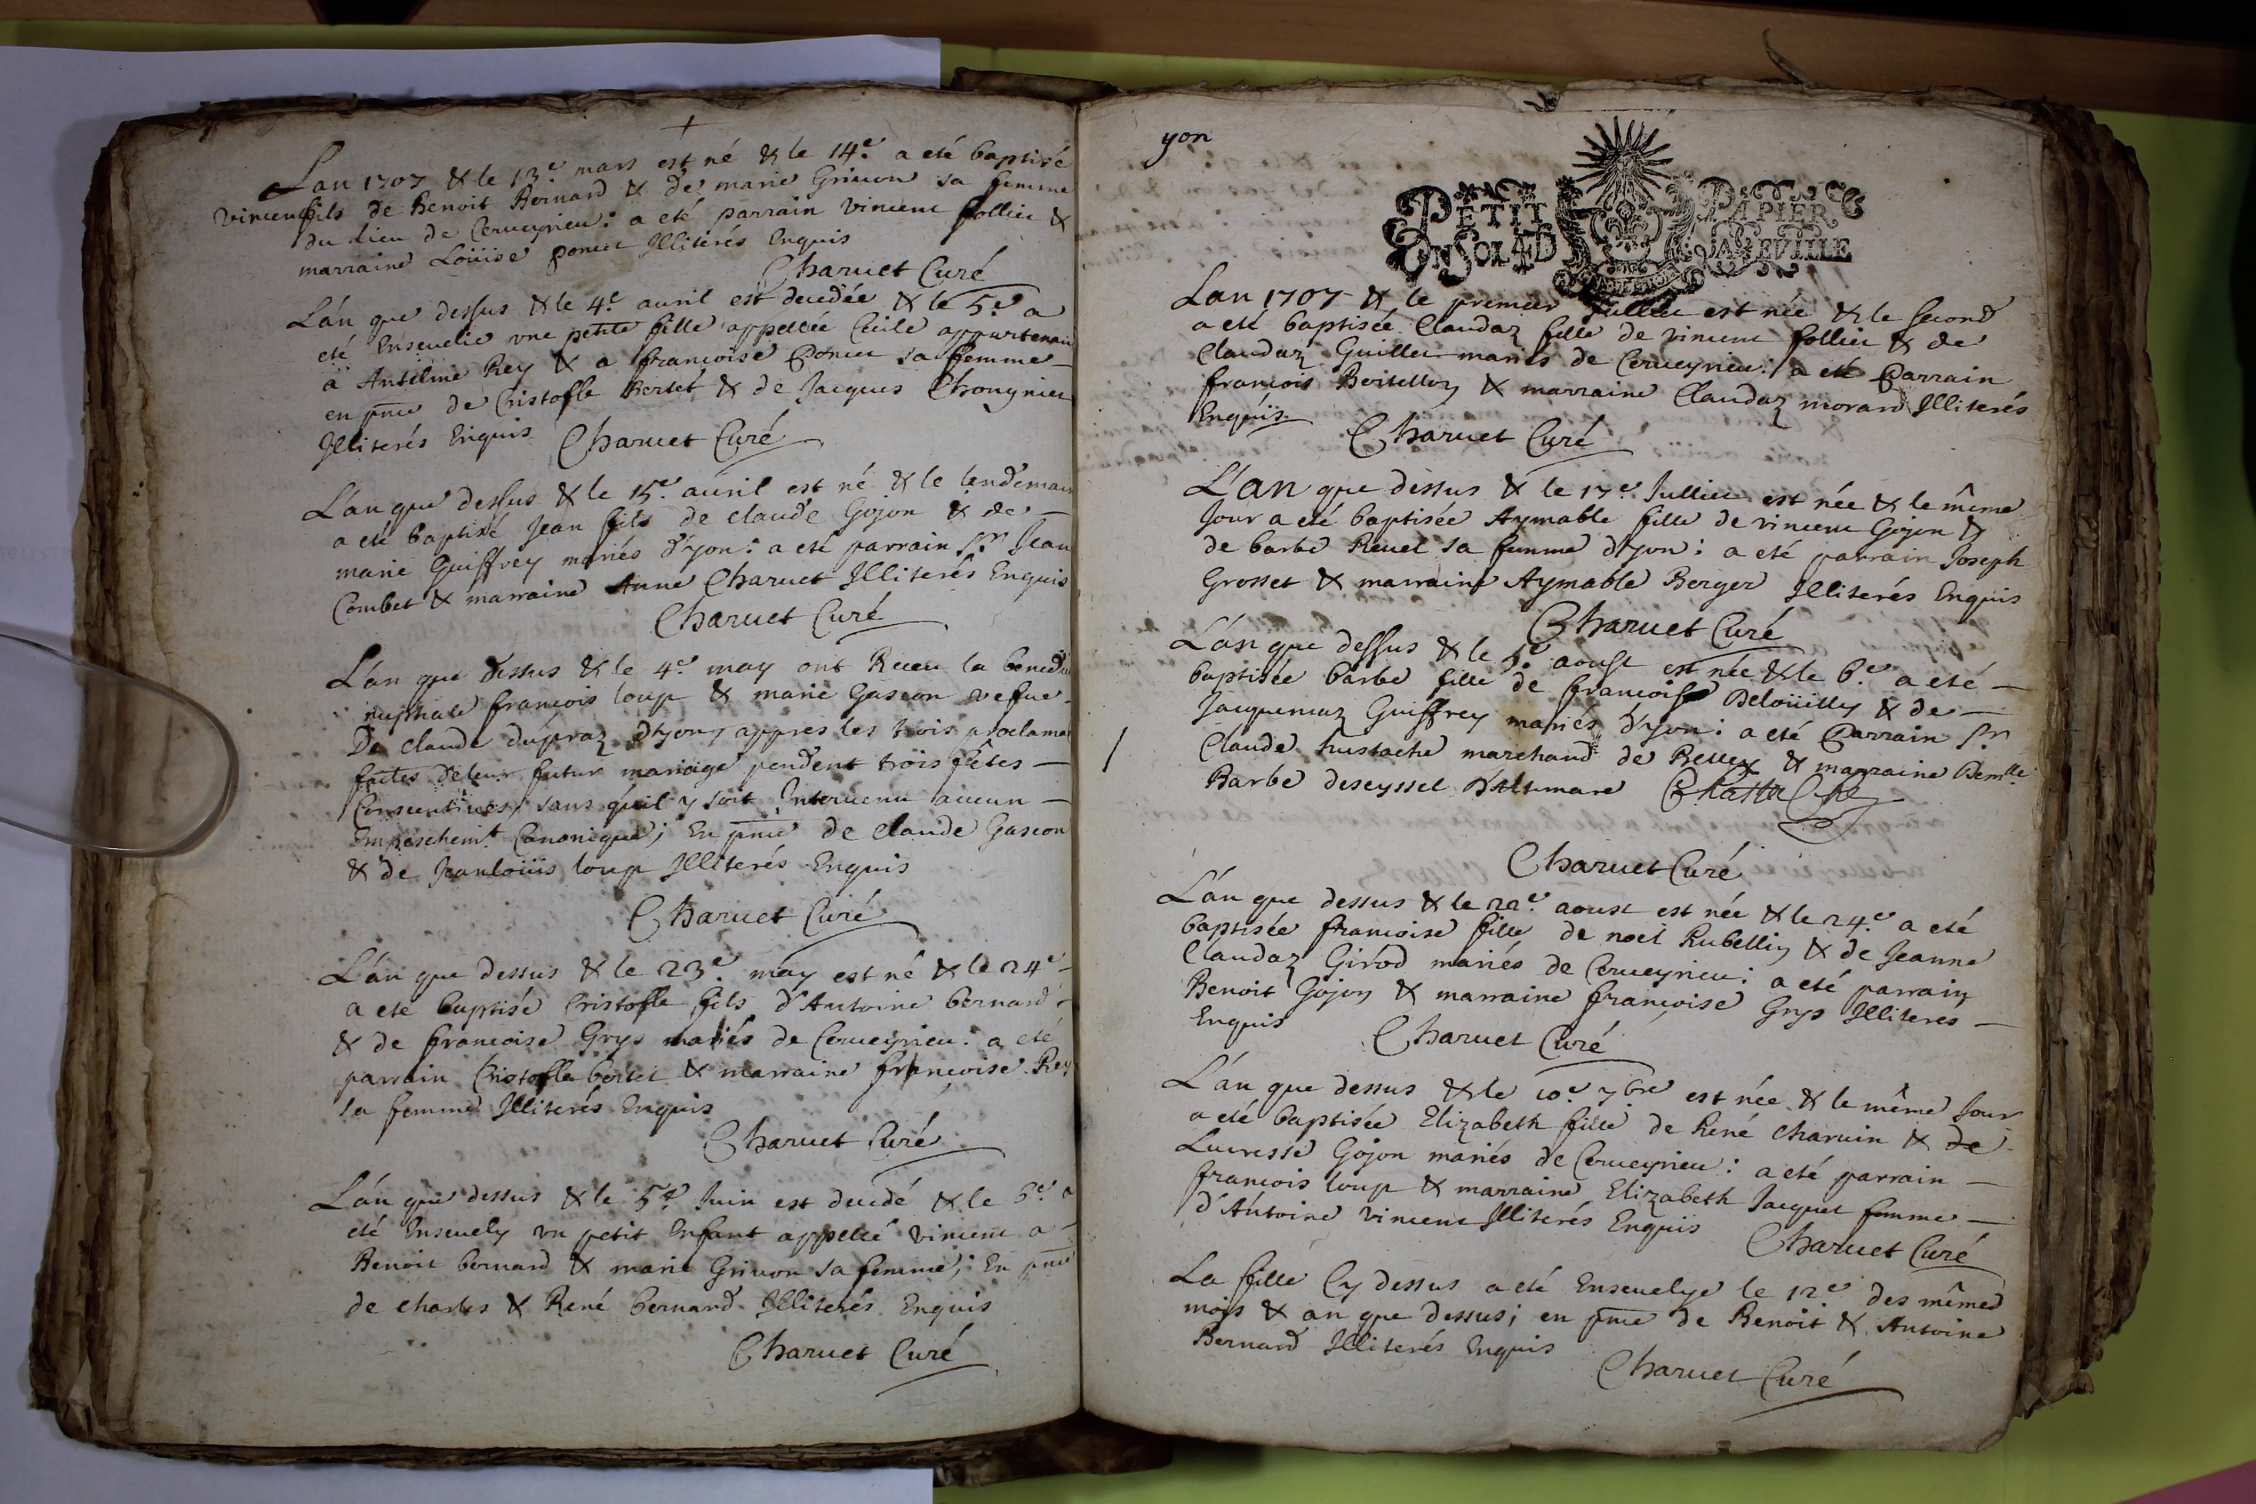 Lan 1707 & le 13.e mars est né & le 14.e a eté baptisé
vincent fils de Benoit Bernard & de marie Griuon sa femme
du lieu de Cerueyrieu: a eté parrain vincent follieu &
marraine Loüise poncet Illiterés Enquis
Charuet Curé
L'an que dessus & le 4.e auril est decedée & le 5.e a
eté Enseuelie vne petite fille appellée Cecile appartenant
a Antelme Rey & a francoise Poncet sa femme
en pnce de Cristofle Bertet & de Jacques Chongnieu
Illiterés Enquis Charuet Curé
L'an que dessus & le 15.e auril est né & le lendemain
a eté baptisé Jean fils de claude Gojon & de
marie Guiffrey mariés d'yon: a eté parrain Sr Jean
Combet & marraine Anne Charuet Illiterés Enquis
Charuet Curé
L'an que dessus & le 4.e may ont Receu la benedi
nuptiale francois loup & marie Gascon vefue
De claude dupraz d'yon, appres les trois proclama
faites de leur futur mariage pendent trois fêtes
Consecutiues, sans qu'il y soit Interuenu aucun
Empeschemt. Canonique; En pnce de claude Gascon
& de Jeanloüis loup Illiterés Enquis
Charuet Curé
L'an que dessus & le 23.e may est né & le 24.e
a eté baptisé Cristofle fils d'Antoine bernard
& de francoise Grys mariés de Cerueyrieu: a eté
parrain Cristofle bertet & marraine francoise Rey
sa femme Illiterés Enquis
Charuet Curé
L'an que dessus & le 5.e Juin est decedé & le 6.e a
eté Enseuely vn petit Enfant appellé vincent a
Benoit bernard & marie Griuon sa femme; En pnce
de charles & René bernard Illiterés Enquis
Charuet Curé
yon
PETIT PAPIER
UN SOL 4D LA FEUILLE
Lan 1707 & le premier Jullieu est née & le second
a eté baptisée Claudaz fille de vincent follieu & de
Claudaz Guillet mariés de Cerueyrieu: a eté Parrain
francois Bertelloz & marraine Claudaz morard Illiterés
Enquis Charuet Curé
L'an que dessus & le 17.e Jullieu est née & le même
Jour a eté baptisée Aymable fille de vincent Gojon &
de barbe Reuel sa femme d'yon: a eté parrain Joseph
Grosset & marraine Aymable Berger Illiterés Enquis
Charuet Curé
L'an que dessus & le 5.e aoust est née & le 6.e a eté
baptisée barbe fille de francois Deloüilly & de
Jacquemaz Guiffrey mariés d'yon: a eté Parrain Sr
Claude hustache marchand de Belley & marraine Demlle
Barbe deseyssel
Charuet Curé
L'an que dessus & le 22.e aoust est née & le 24.e a eté
baptisée francoise fille de noel Rubellin & de Jeanne
Claudaz Girod mariés de Cerueyrieu: a eté parrain
Benoit Gojon & marraine francoise Grys Illiterés
Enquis Charuet Curé
L'an que dessus & le 10.e 7bre est née & le même Jour
a eté baptisée Elizabeth fille de René charuin & de
Lucresse Gojon mariés de Cerueyrieu: a eté parrain
francois loup & marraine Elizabeth Jacquet femme
d'Antoine vincent Illiterés Enquis Charuet Curé
La fille Cy dessus a eté Enseuelye le 12.e des mêmes
mois & an que dessus; en pnce de Benoit & Antoine
Bernard Illiterés Enquis
Charuet Curé